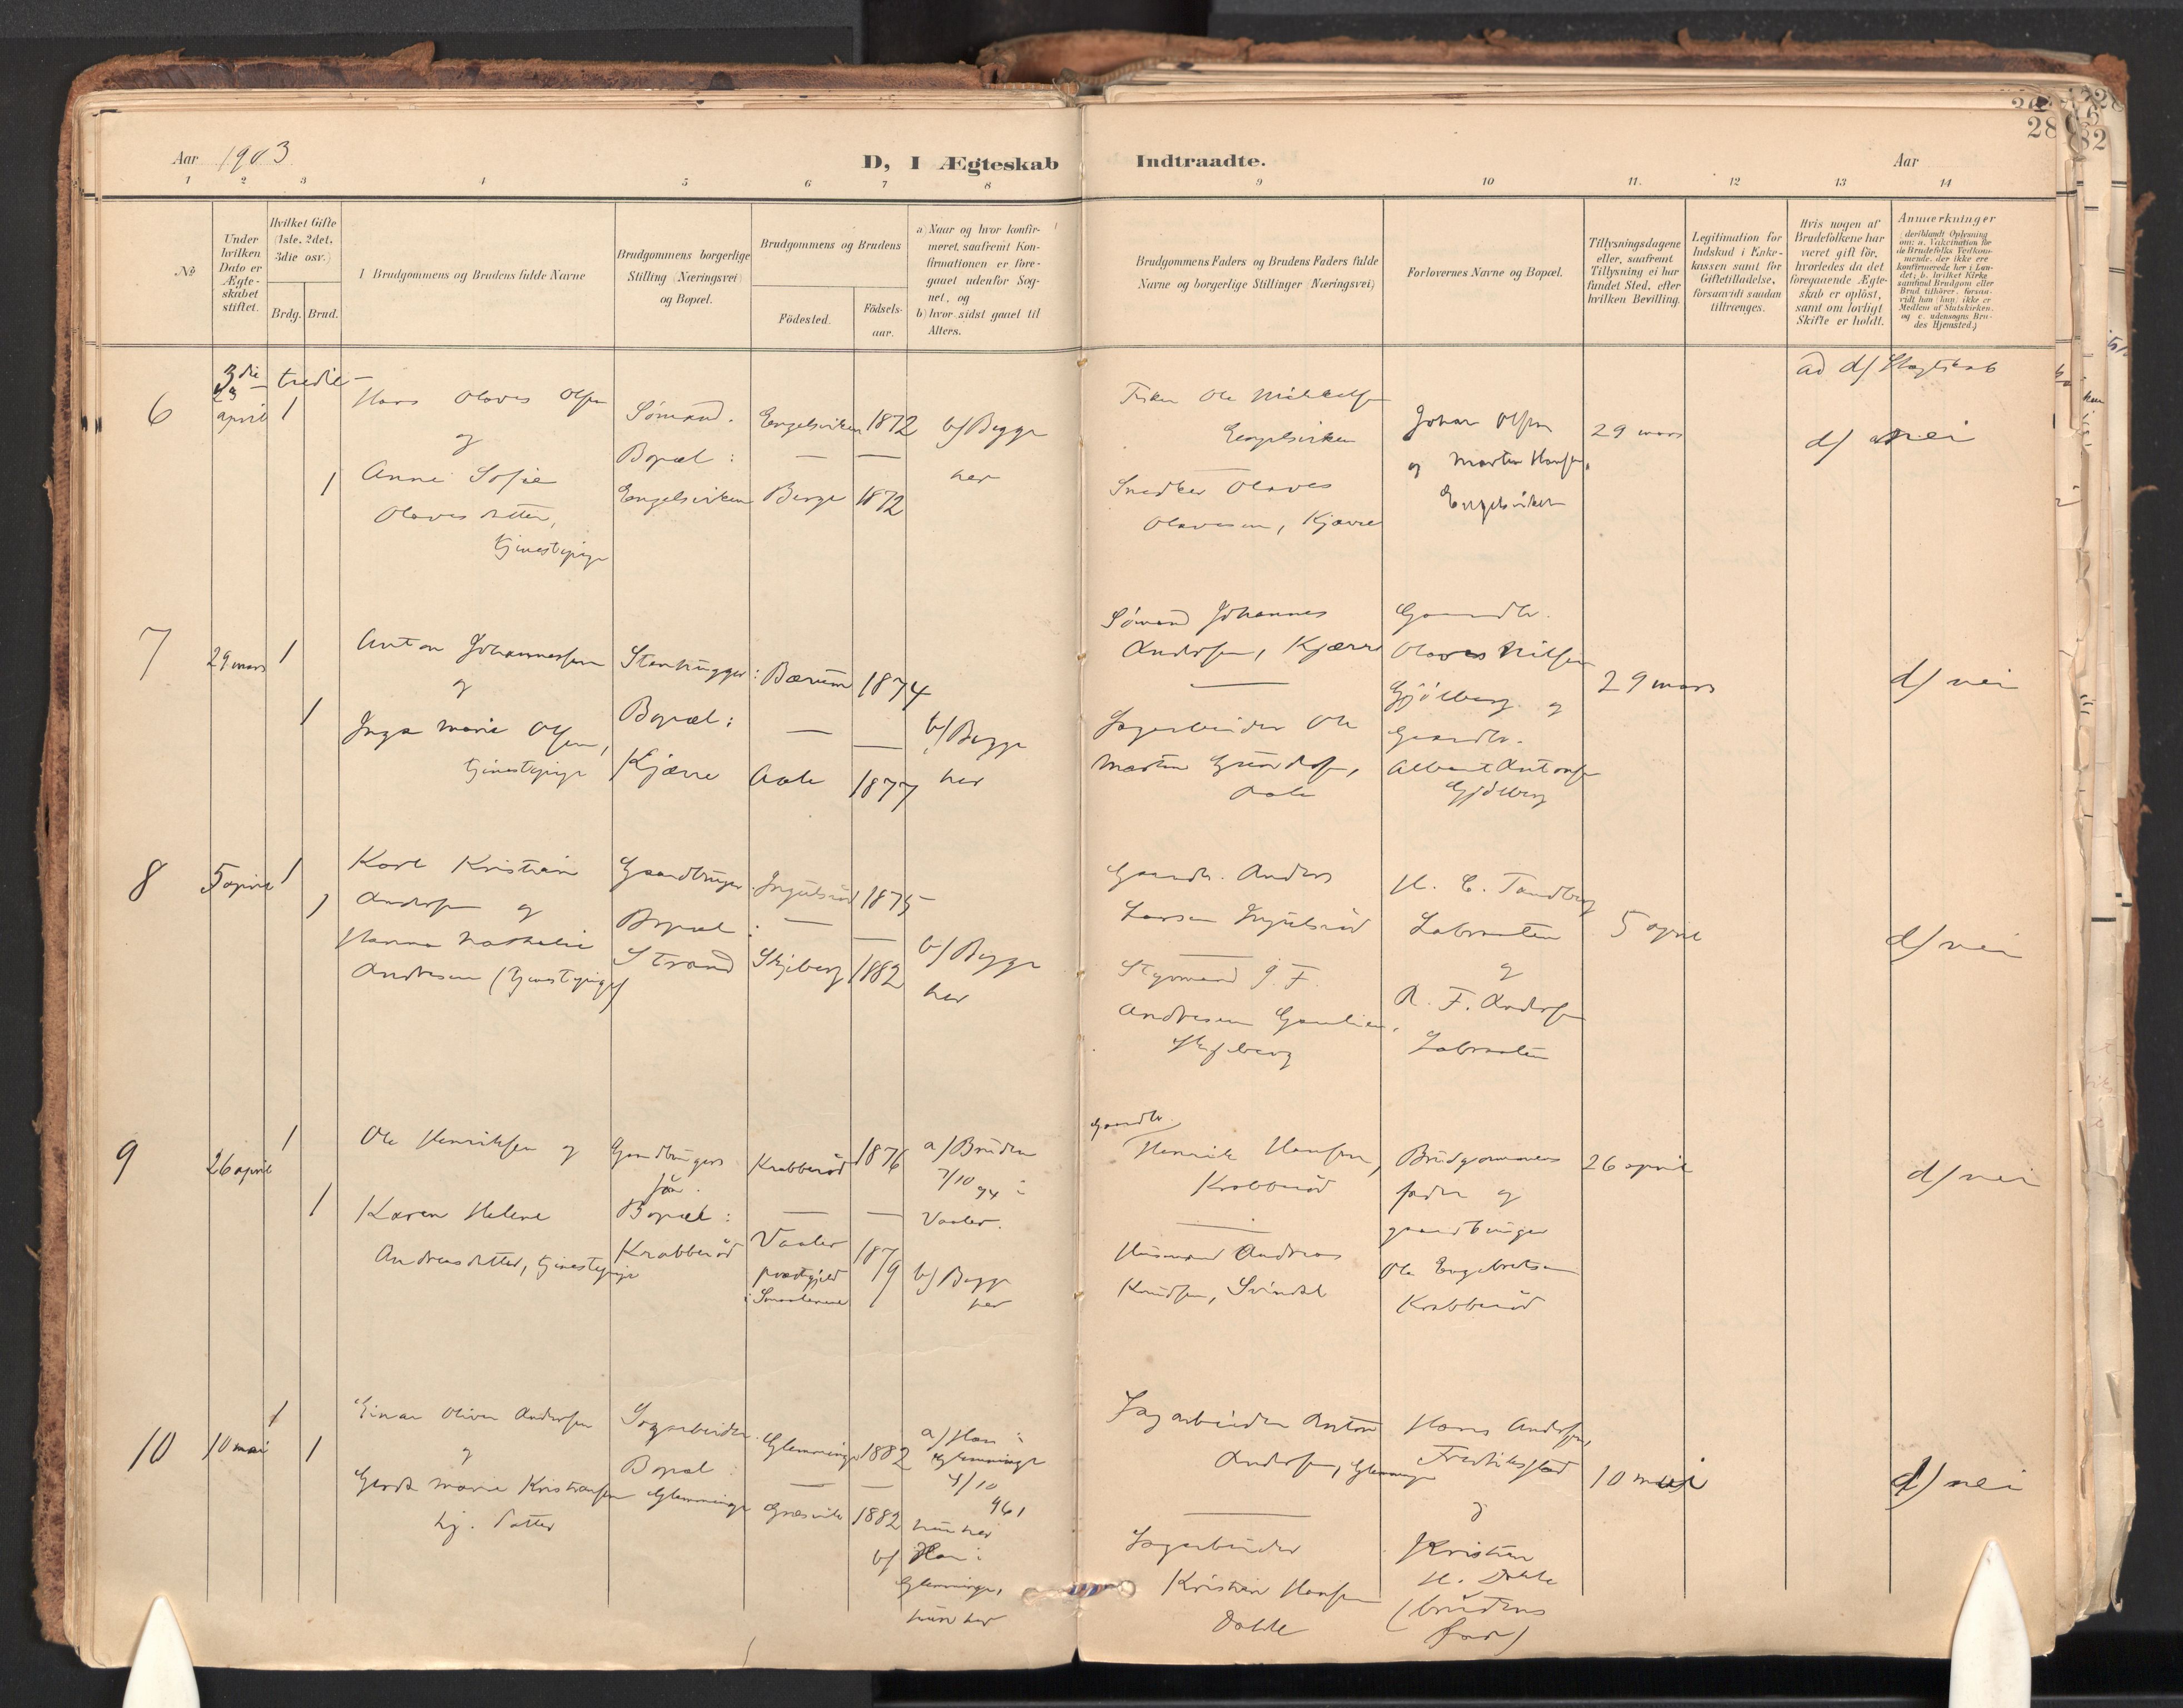 Aar 1903.
D, I Ægteskab Indtraadte.
Aar
28
1 2 3 4 5 6 7 8 9 10 11. 12 13 14
No
Under hvilken Dato er Ægteskabet stiftet.
Hvilket Gifte (1ste, 2det, 3die osv.)
Brdg. Brud.
Brudgommens og Brudens fulde Navne
Brudgommens borgerlige Stilling (Næringsvei) og Bopæl.
Brudgommens og Brudens
Födested.
Födsels-aar.
a) Naar og hvor konfir-
meret, saafremt Kon-
firmationen er fore-
gaaet udenfor Sog-
net, og
b) hvor sidst gaaet til
Alters.
Brudgommens Faders og Brudens Faders fulde
Navne og borgerlige Stillinger (Næringsvei)
Forlovernes Navne og Bopæl.
Tillysningsdagene
eller, saafremt
Tillysning ei har
fundet Sted, efter
hvilken Bevilling.
Legitimation for
Indskud i Enke-
kassen samt for
Giftetilladelse,
forsaavidt saadan
tiltrænges.
Hvis nogen af
Brudefolkene har
været gift för,
hvorledes da det
foregaaende Ægte-
skab er oplöst,
samt om lovligt
Skifte er holdt.
Anmærkninger
(deriblandt Oplysning
om: a. Vakcination for
de Brudefolks Vedkom-
mende, der ikke ere
konfirmerede her i Lan-
det; b. hvilket Kirke
samfund Brudgom eller
Brud tilhörer, forsaa-
vidt han (hun) ikke er
Medlem af Statskirken,
og c. udensogns Bru-
des Hjemsted.)
ad d/ Slægtskab
6
3die
april
1
1
Hans Olaves Olsen
og
Anne Sofie
Olavesdatter,
tjenestepige
Sømand.
Bopæl:
Engelsviken
Engelsviken 1872
Borge 1872
b/ Begge
her
Fisker Ole Mikkelsen
Engelsviken
Snedker Olaves
Olavesen, Kjærre
Johan Olsen
og Martin Hansen,
Engelsviken
29 mars
d/ nei
7
29 mars
1
1
Anton Johannessen
og
Inga Marie Olsen,
tjenestepige
Stenhugger
Bopæl:
Kjærre
Bærum 1874
Aale 1877
b/ Begge
her
Sømand Johannes
Andersen, Kjærre
Sagarbeider Ole
Martin
Aale
Gaardbr.
Olaves Nilsen
Gjølberg og
Gaardbr.
Albert Antonsen
Gjølberg
29 mars
d/ nei
8
5 april
1
1
Karl Kristian
Andersen og
Hanna Nathalie
Andresen (tjenestepige)
Gaardbruger.
Bopæl:
Strand
Ingulsrød 1875
Skjeberg 1882
b/ Begge
her
Gaardbr. Anders
Larsen Ingulsrød
Styrmand J. F.
Andresen
Skjeberg
H. C. Tandberg
Labraaten
og
A. F. Andersen
Labraaten
5 april
d/ nei
9
26 april
1
1
Ole Henriksen og
Karen Helene
Andreasdatter, tjenestepige
Gaardbrugers
søn.
Bopæl:
Krabberød
Krabberød 1876
Vaaler
prestgjeld
i Smaalenene
1879
a/ Bruden
7/10 94 i
Vaaler.
b/ Begge
her
Gaardbr.
Henrik Hansen,
Krabberød
Husmand Andreas
Knudsen, Svindal
Brudgommens
fader og
gaardbruger
Ole Engebretsen
Krabberød
26 april
d/ nei
10
10 mai
1
1
Einar Oliver Andersen
og
Marie Kristiansen
hj. datter
Sagarbeider.
Bopæl:
Glemminge
Glemminge 1882
Græsvik 1882
a/ Han i
Glemminge
4/10
961
hun her
b/ Han i
Glemminge,
hun her
Sagarbeider Anton
Andersen, Glemminge
Sagarbeider
Kristian Hansen
Dahle
Hans Andersen,
Fredriksstad
og
Kristian
H. Dahle
(brudens
far)
10 mai
d/ nei